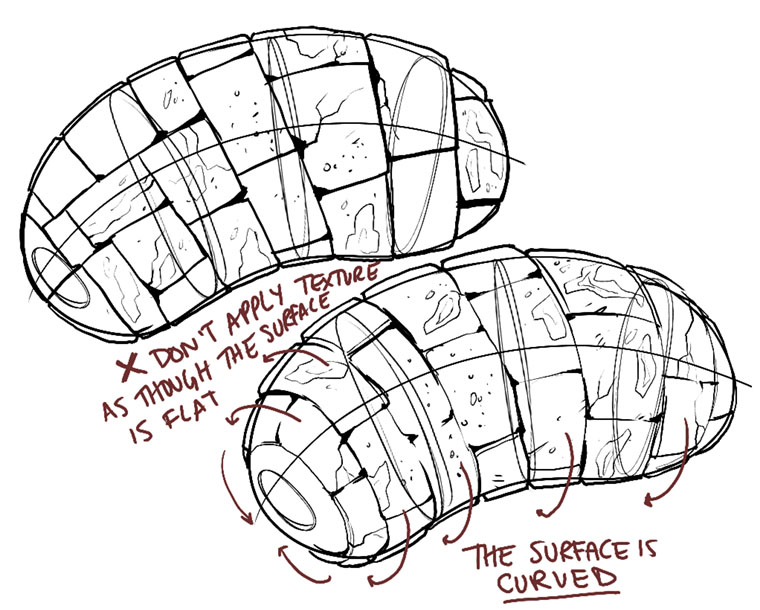 X DON'T APPLY TEXTURE
AS THOUGH THE SURFACE
IS FLAT
THE SURFACE IS
CURVED